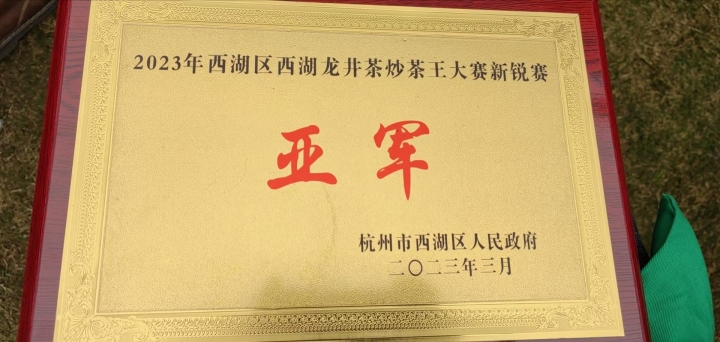 2023年西湖区西湖龙井茶炒茶王大赛新锐赛
亚军
杭州市西湖区人民政府
二〇二三年三月